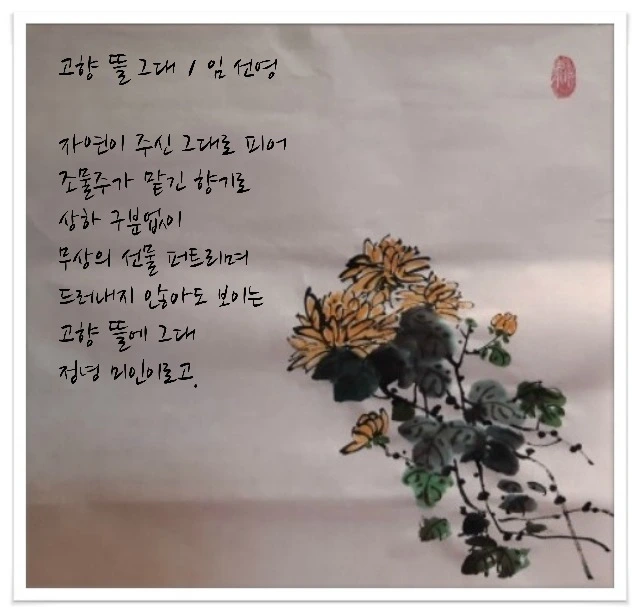 고향 뜰 그대 / 임 선영
자연이 주신 그대로 피어
조물주가 맡긴 향기로
상하 구분없이
무상의 선물 퍼트리며
드러내지 않아도 보이는
고향 뜰에 그대
정녕 미인이로고.